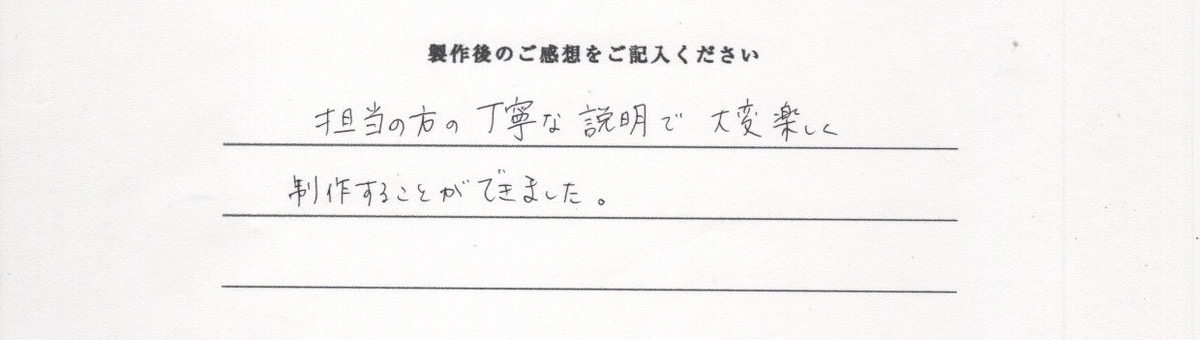 製作後のご感想をご記入ください
担当の方の丁寧な説明で大変楽しく
制作することができました。